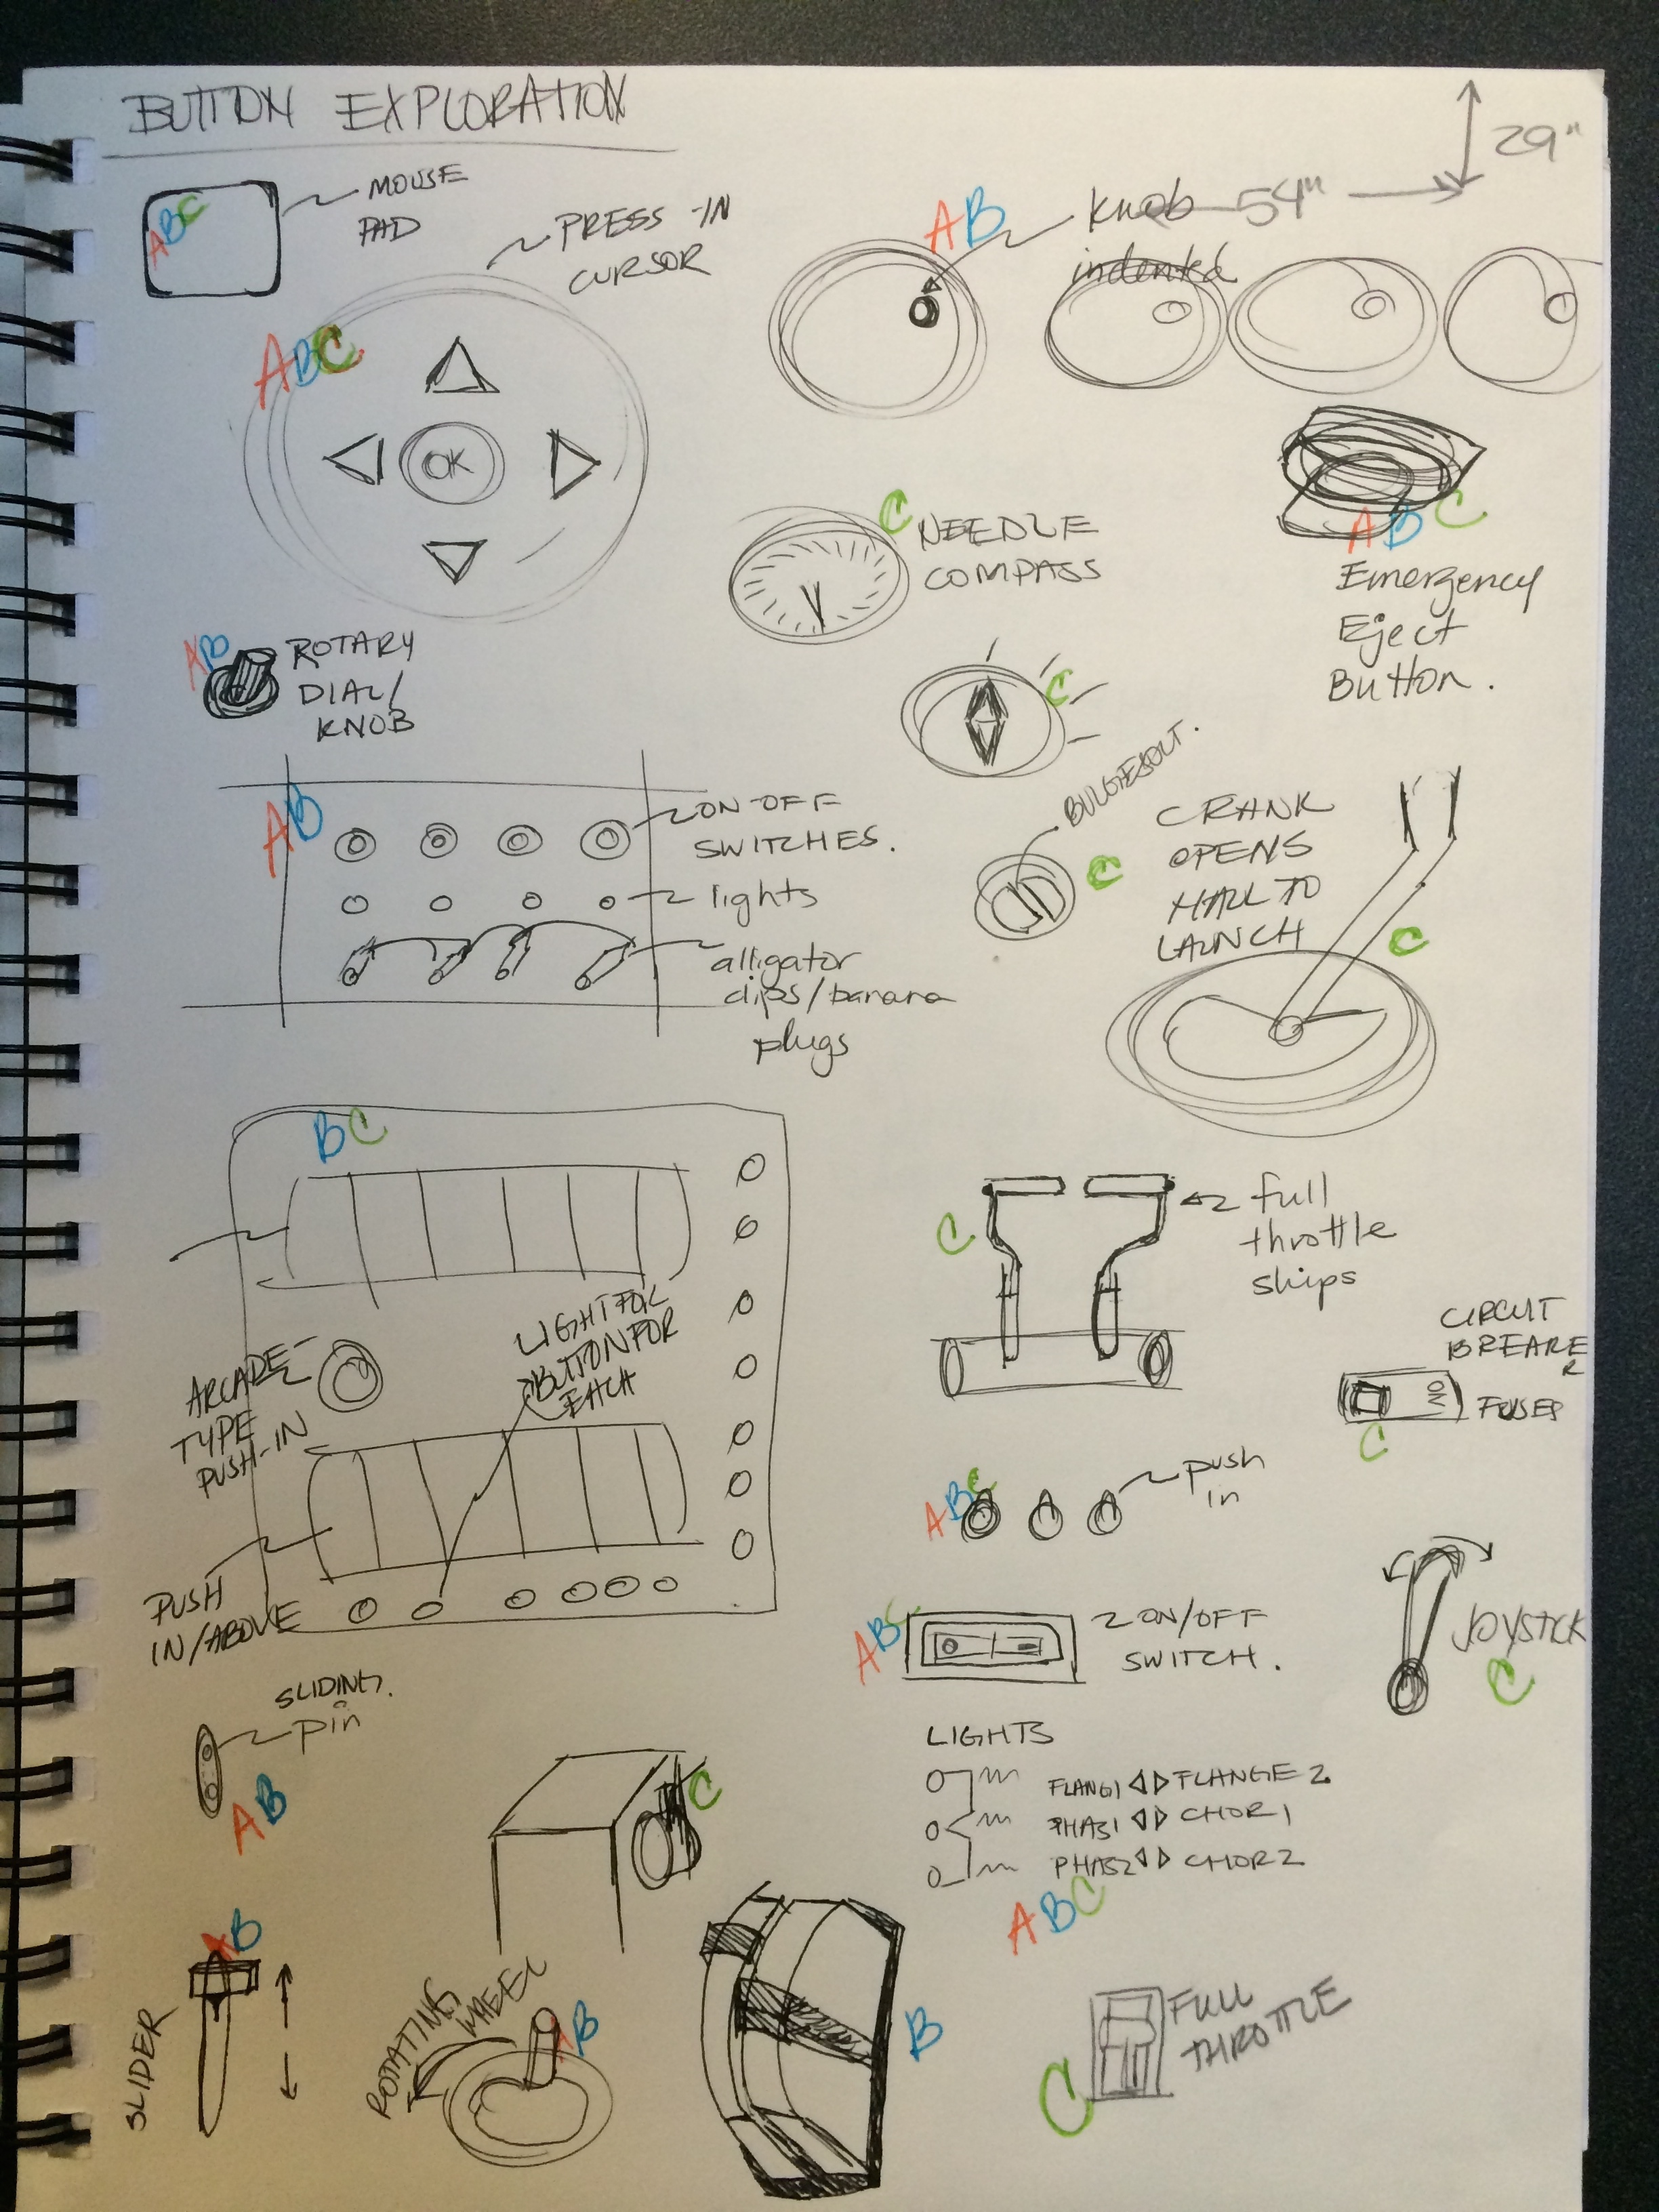 BUTTON EXPLORATION
29"
54"
ABC
MOUSE
PAD
PRESS-IN
CURSOR
ABC
OK
AB
knob
indented
C
NEEDLE
COMPASS
ABC
Emergency
Eject
Button.
AB
ROTARY
DIAL/
KNOB
C
AB
ON-OFF
SWITCHES.
lights
alligator
clips/banana
plugs
C
CRANK
OPENS
TO
LAUNCH
C
BC
ARCADE
TYPE
PUSH-IN
LIGHT FOR
BUTTON FOR
EACH
PUSH
IN/ABOVE
C
full
throttle
ships
CIRCUIT
BREAKE
R
ON
FUSES
C
ABC
push
in
ABC
ON/OFF
SWITCH.
JOYSTICK
C
SLIDING.
pin
AB
C
LIGHTS
FLANG1 ◁▷ FLANGE 2
PHAS1 ◁▷ CHOR1
PHAS2 ◁▷ CHOR2
ABC
AB
SLIDER
ROTATING
WHEEL
AB
B
C
FULL
THROTTLE